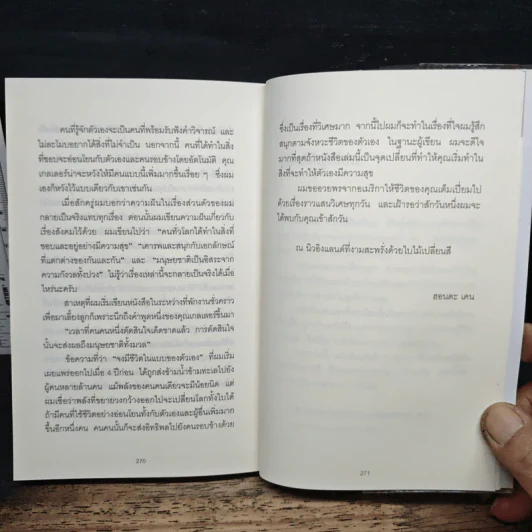 คนที่รู้จักตัวเองจะเป็นคนที่พร้อมรับฟังคำวิจารณ์ และ
ไม่ละโมบอยากได้สิ่งที่ไม่จำเป็น นอกจากนี้ คนที่ได้ทำในสิ่ง
ที่ชอบจะอ่อนโยนกับตัวเองและคนรอบข้างโดยอัตโนมัติ คุณ
เกลเลอร์น่าจะหวังให้มีคนแบบนี้เพิ่มมากขึ้นเรื่อย ๆ ซึ่งผม
เองก็หวังไว้แบบเดียวกับเขาเช่นกัน
เมื่อสักครู่ผมบอกว่าความฝันในเรื่องส่วนตัวของผม
กลายเป็นจริงแทบทุกเรื่อง ตอนนั้นผมเขียนความฝันเกี่ยวกับ
เรื่องสังคมไว้ด้วย ผมเขียนไปว่า "คนทั่วโลกได้ทำในสิ่งที่
ชอบและอยู่อย่างมีความสุข" "เคารพและสนุกกับเอกลักษณ์
ที่แตกต่างของกันและกัน" และ "มนุษยชาติเป็นอิสระจาก
ความกังวลทั้งปวง" ไม่รู้ว่าเรื่องเหล่านี้จะกลายเป็นจริงได้เมื่อ
ไหร่นะครับ
สาเหตุที่ผมเริ่มเขียนหนังสือในระหว่างที่พักงานชั่วคราว
เพื่อมาเลี้ยงลูกก็เพราะนึกถึงคำพูดหนึ่งของคุณเกลเลอร์ขึ้นมา
"เวลาที่คนคนหนึ่งตัดสินใจเด็ดขาดแล้ว การตัดสินใจ
นั้นจะส่งผลถึงมนุษยชาติทั้งมวล"
ข้อความที่ว่า "จงมีชีวิตในแบบของตัวเอง" ที่ผมเริ่ม
เผยแพร่ออกไปเมื่อ 4 ปีก่อน ได้ถูกส่งข้ามน้ำข้ามทะเลไปยัง
ผู้คนหลายล้านคน แม้พลังของคนคนเดียวจะมีน้อยนิด แต่
ผมเชื่อว่าพลังที่ขยายวงกว้างออกไปจะเปลี่ยนโลกทั้งใบได้
ถ้ามีคนที่ใช้ชีวิตอย่างอ่อนโยนทั้งกับตัวเองและผู้อื่นเพิ่มมาก
ขึ้นอีกหนึ่งคน คนคนนั้นก็จะส่งอิทธิพลไปยังคนรอบข้างด้วย
270
ซึ่งเป็นเรื่องที่วิเศษมาก จากนี้ไปผมก็จะทำในเรื่องที่ใจผมรู้สึก
สนุกตามจังหวะชีวิตของตัวเอง ในฐานะผู้เขียน ผมจะดีใจ
มากที่สุดถ้าหนังสือเล่มนี้เป็นจุดเปลี่ยนที่ทำให้คุณเริ่มทำใน
สิ่งที่จะทำให้ตัวเองมีความสุข
ผมขออวยพรจากอเมริกาให้ชีวิตของคุณเต็มเปี่ยมไป
ด้วยเรื่องราวแสนวิเศษทุกวัน และเฝ้ารอว่าสักวันหนึ่งผมจะ
ได้พบกับคุณเข้าสักวัน
ณ นิวอิงแลนด์ที่งามสะพรั่งด้วยใบไม้เปลี่ยนสี
ฮอนดะ เคน
271